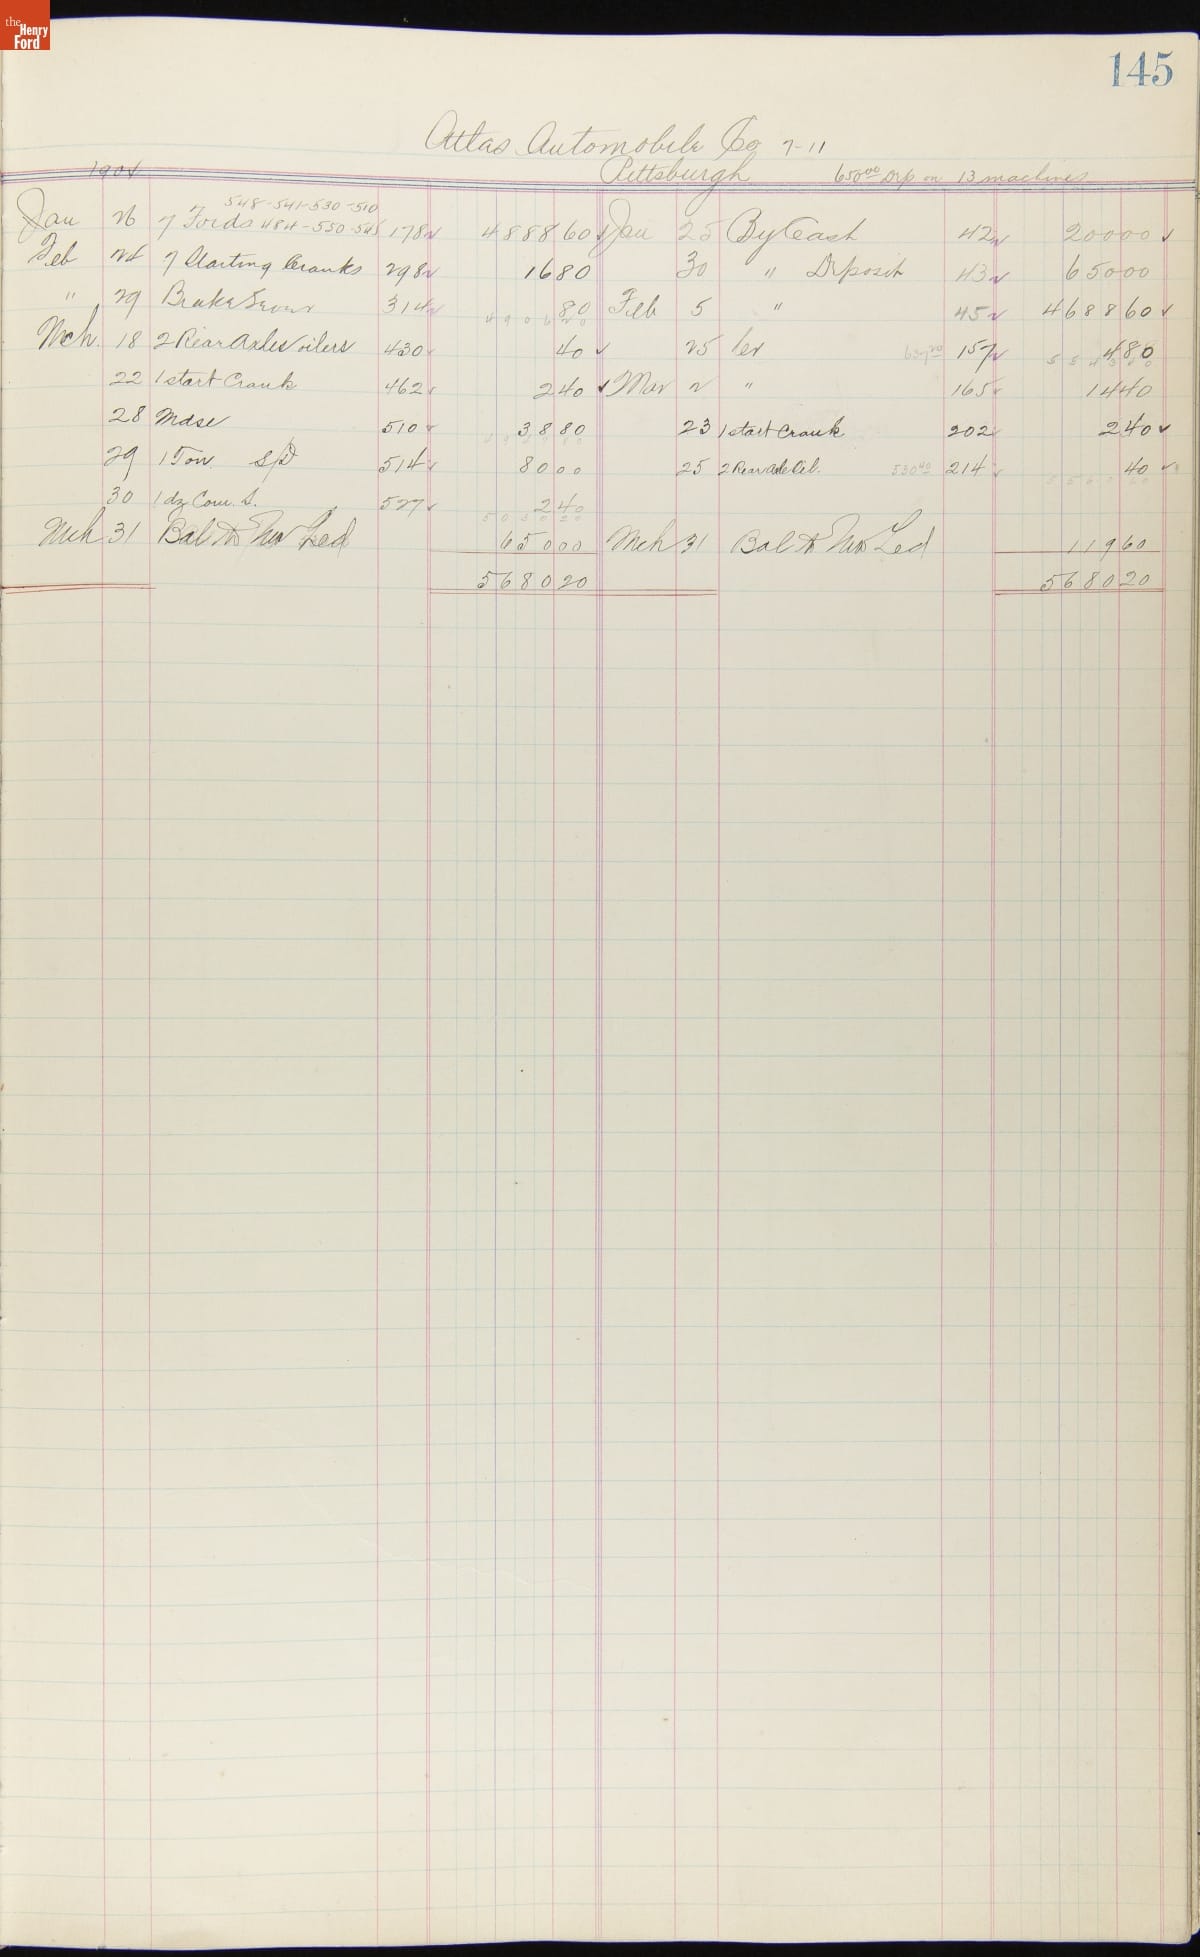 the Henry Ford
145
Atlas Automobile Co 7-11
1904 Pittsburgh 650 00 Dep on 13 machines
548-541-530-510
Jan 26 7 Fords 484-550-545 178 4888 60 Jan 25 By Cash 42 200 00
Feb 24 7 Starting Cranks 298 16 80 30 " Deposit 43 650 00
" 29 Brake 314 80 Feb 5 " 45 4688 60
4906 20
Mch. 18 2 Rear Axle oilers 430 40 25 637 20 157 4 80
5543 40
22 1 start Crank 462 2 40 Mar 2 " 165 14 40
28 Mdse 510 38 80 23 1 start Crank 202 2 40
29 1 Ton 514 80 00 25 2 Rear Axle Oil. 530 40 214 40
5560 60
30 1 dz Com. S. 527 2 40
5030 20
Mch 31 Bal to New Led 650 00 Mch 31 Bal to New Led 119 60
5680 20 5680 20